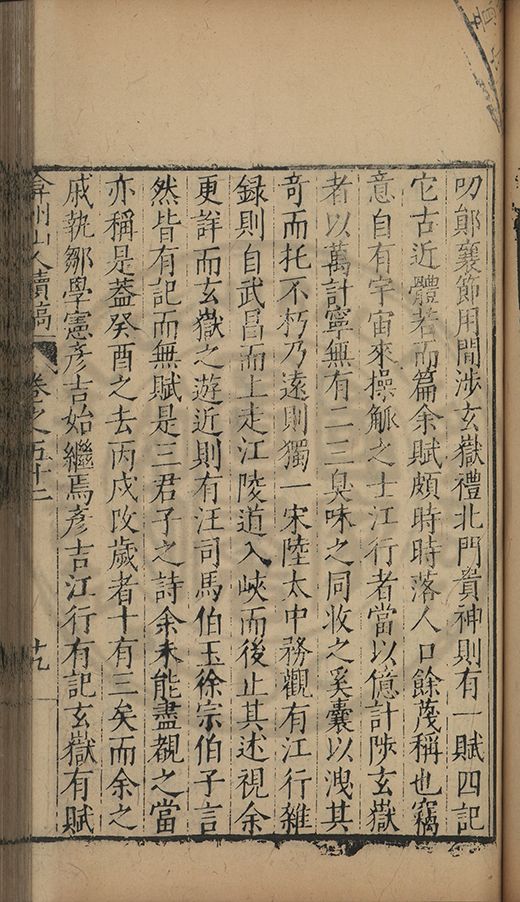 叨鄖襄節用間涉玄嶽禮北門貴神則有一賦四記
它古近體若而篇余賦頗時時落人口餘蔑稱也竊
意自有宇宙來操觚之士江行者當以億計陟玄嶽
者以萬計寧無有二三臭味之同收之奚囊以洩其
奇而托不朽乃遠則獨一宋陸太中務觀有江行雜
録則自武昌而上走江陵道入峽而後止其述視余
更詳而玄嶽之遊近則有汪司馬伯玉徐宗伯子言
然皆有記而無賦是三君子之詩余未能盡覩之當
亦稱是葢癸酉之去丙戌改歲者十有三矣而余之
戚執鄒學憲彥吉始繼焉彥吉江行有記玄嶽有賦
弇州山人續稿
卷之五十二
十九